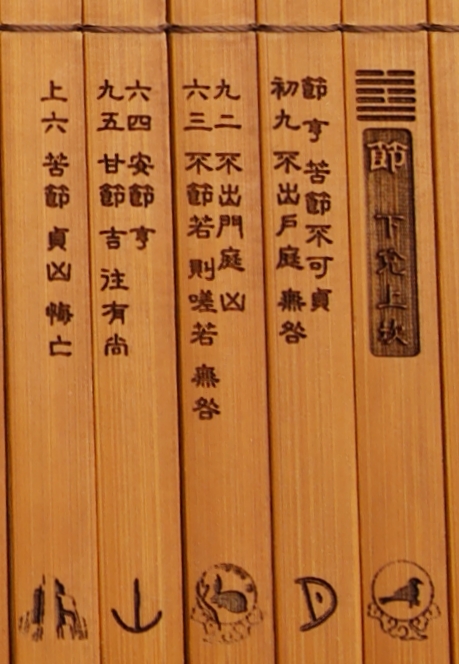 節 下兌上坎
節 亨 苦節不可貞
初九 不出戶庭 無咎
九二 不出門庭 凶
六三 不節若 則嗟若 無咎
六四 安節 亨
九五 甘節 吉 往有尚
上六 苦節 貞凶 悔亡